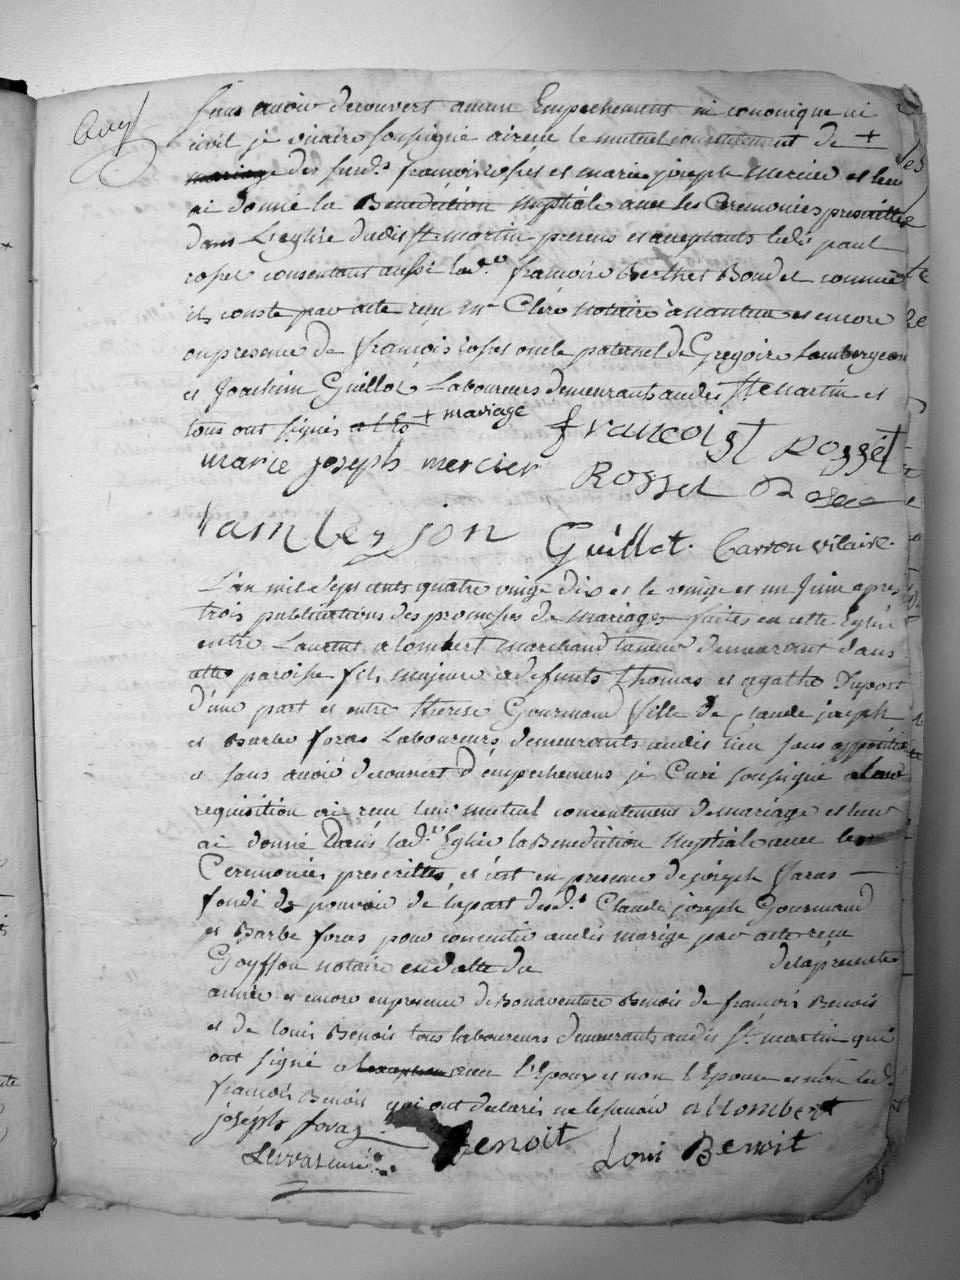 sans avoir decouvert aucun Empechement ni cononique ni
civil je vicaire soussigné ai recu le mutuel consentement de +
mariage des susd.s francois roset et marie joseph mercier et leur
ai donné la Benediction Nuptiale avec les Ceremonies prescrittes
dans L'eglise dudit St martin presens et acceptants ledit paul
roset consentant aussi lad.te francoise Berthet Boudet comme
il conste par acte recu m.e Clerc Notaire à nantua et encore
en presence de francois roset oncle paternel de Gregoire Lambergeon
et Joachim Guillot Laboureurs demeurants audit St Martin et
tous ont signés et le + mariage
francoist Rosset
marie joseph mercier
Rosset
lamberjon Guillot. Carron vicaire.
L'an mil sept cents quatre vingt dix et le vingt et un Juin apres
trois publications des promesses de mariages faites en cette Eglise
entre Laurent alombert marchand taneur demeurant dans
cette paroisse fils majeur à defunts Thomas et agathe Dupont
d'une part et entre therese Gourmand fille de Claude joseph
et Barbe foras Laboureurs demeurants audit lieu sans opposition
et sans avoir decouvert d'empechemens je Curé soussigné a leur
requisition ai recu leur mutuel consentement de mariage et leur
ai donné Dans lad.te Eglise la Benediction Nuptiale avec les
Ceremonies prescrittes et c'est en presence de joseph Faras
fondé de pouvoir de la part desd.s Claude joseph Gourmand
et Barbe foras pour consentir audit mariage par acte recu
Goyffon notaire en datte du de la presente
année et encore en presence de Bonaventure Benoit de francois Benoit
et de louis Benoit tous laboureurs demeurants audit St. martin qui
ont signé avec l'Epoux et non l'Epouse et non led.
francois Benoit qui ont declarés ne le scavoir allombert
joseph foraz Benoit Loui Benoit